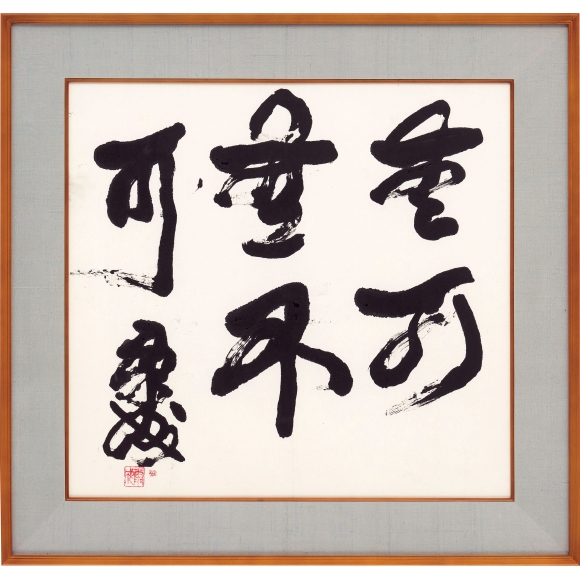 無可
無不
可